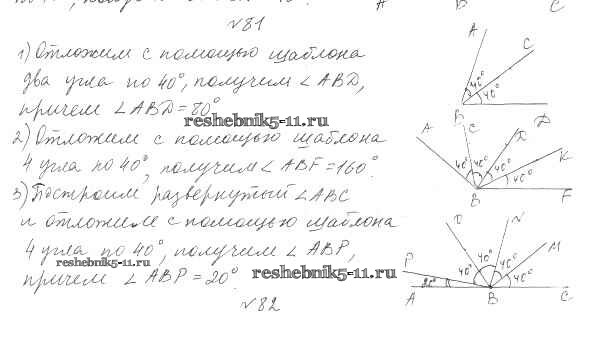 А В С
№81
1) Отложим с помощью шаблона
два угла по 40°, получим ∠ABD,
причем ∠ABD=80°
reshebnik5-11.ru
2) Отложим с помощью шаблона
4 угла по 40°, получим ∠ABF=160°.
3) Построим развернутый ∠ABC
и отложим с помощью шаблона
4 угла по 40°, получим ∠ABP,
reshebnik5-11.ru
причем ∠ABP=20°
reshebnik5-11.ru
№82
A
C
40°
40°
B
A
C
D
40°
40°
40°
K
40°
B
F
D
N
M
P
40°
40°
40°
40°
20°
A B C